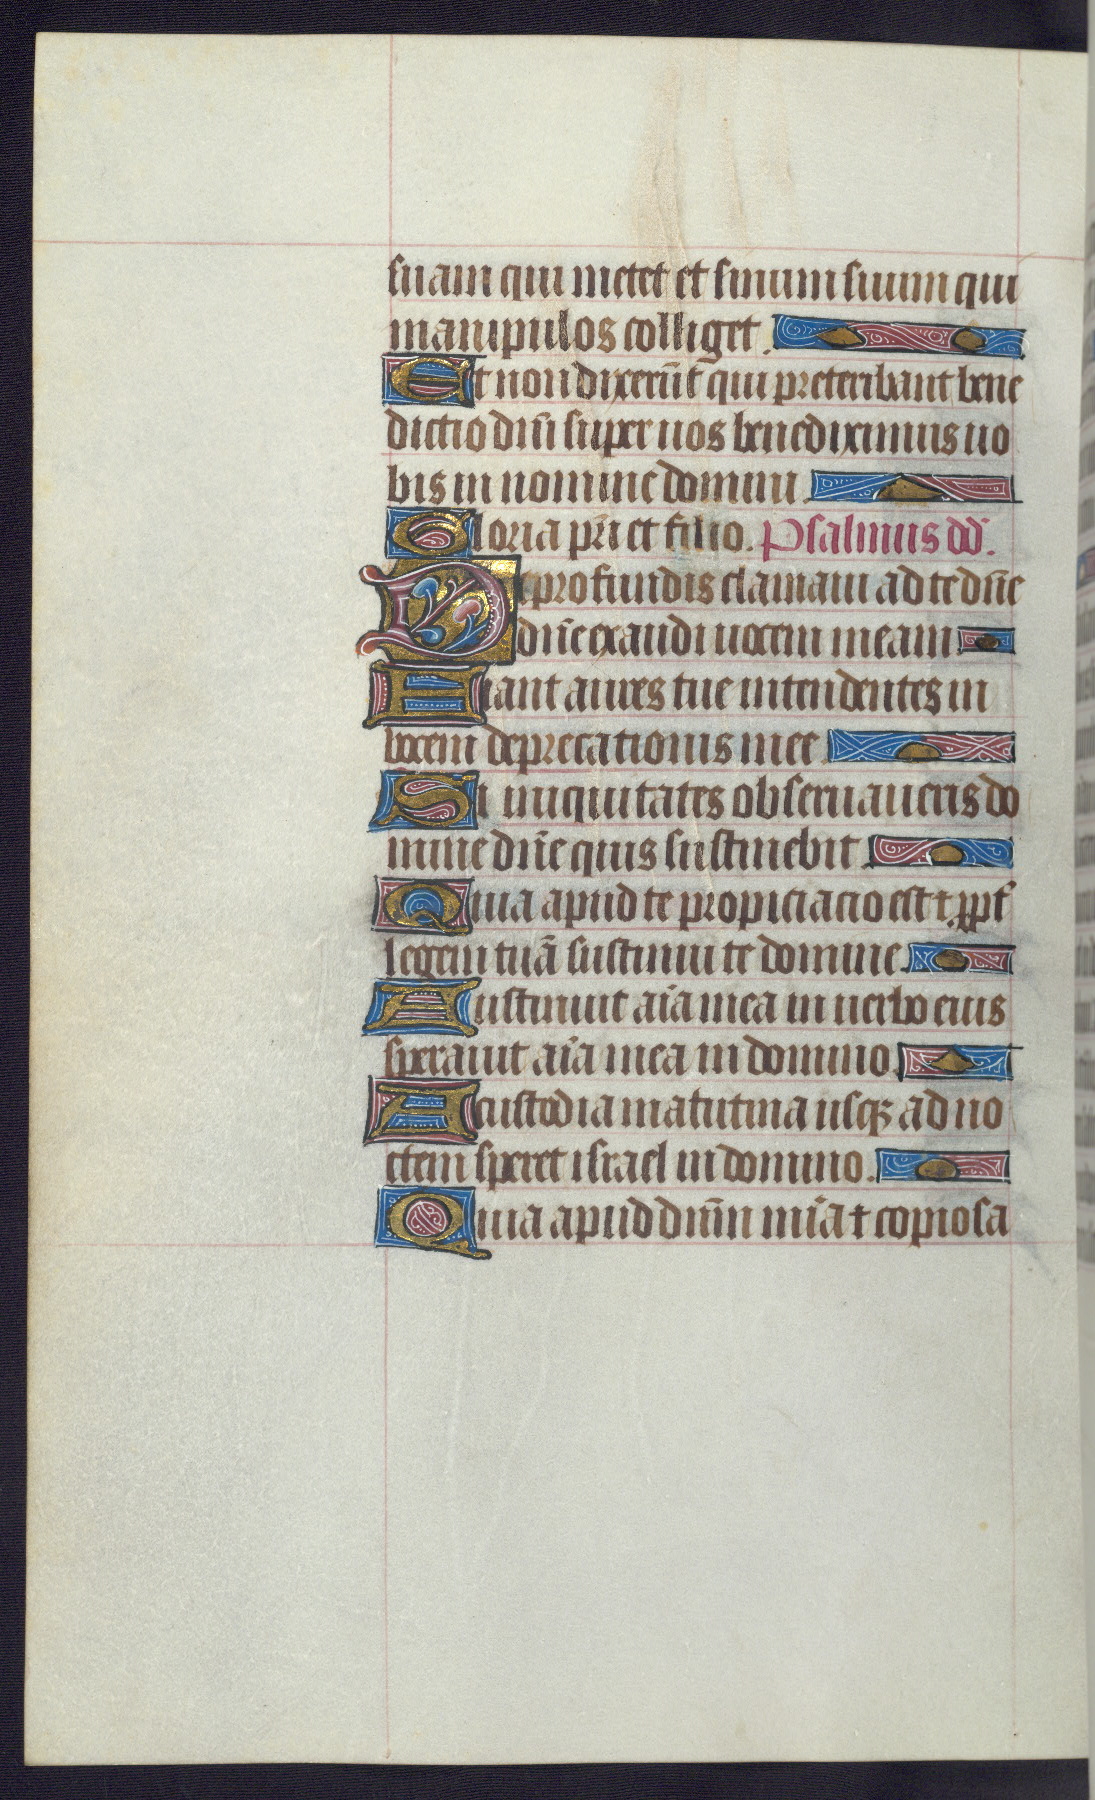 suam qui metet et sinum suum qui
manipulos colliget.
Et non dixerūt qui preteribant bene
dictio dnī super uos benediximus uo
bis in nomine domini.
Gloria pr̄i et filio. Psalmus dd̄.
De profundis clamaui ad te dn̄e
dn̄e exaudi uocem meam
Fiant aures tue intendentes in
vocem deprecationis mee
Si iniquitates obseruaueris do
mine dn̄e quis sustinebit.
Quia apud te propiciacio est ⁊ ꝓpt̄
legem tuā sustinui te domine.
Austinuit aīa mea in uerbo eius
sperauit aīa mea in domino.
A custodia matutina usqꝫ ad no
ctem speret israel in domino.
Quia apud dnm̄ mīa ⁊ copiosa